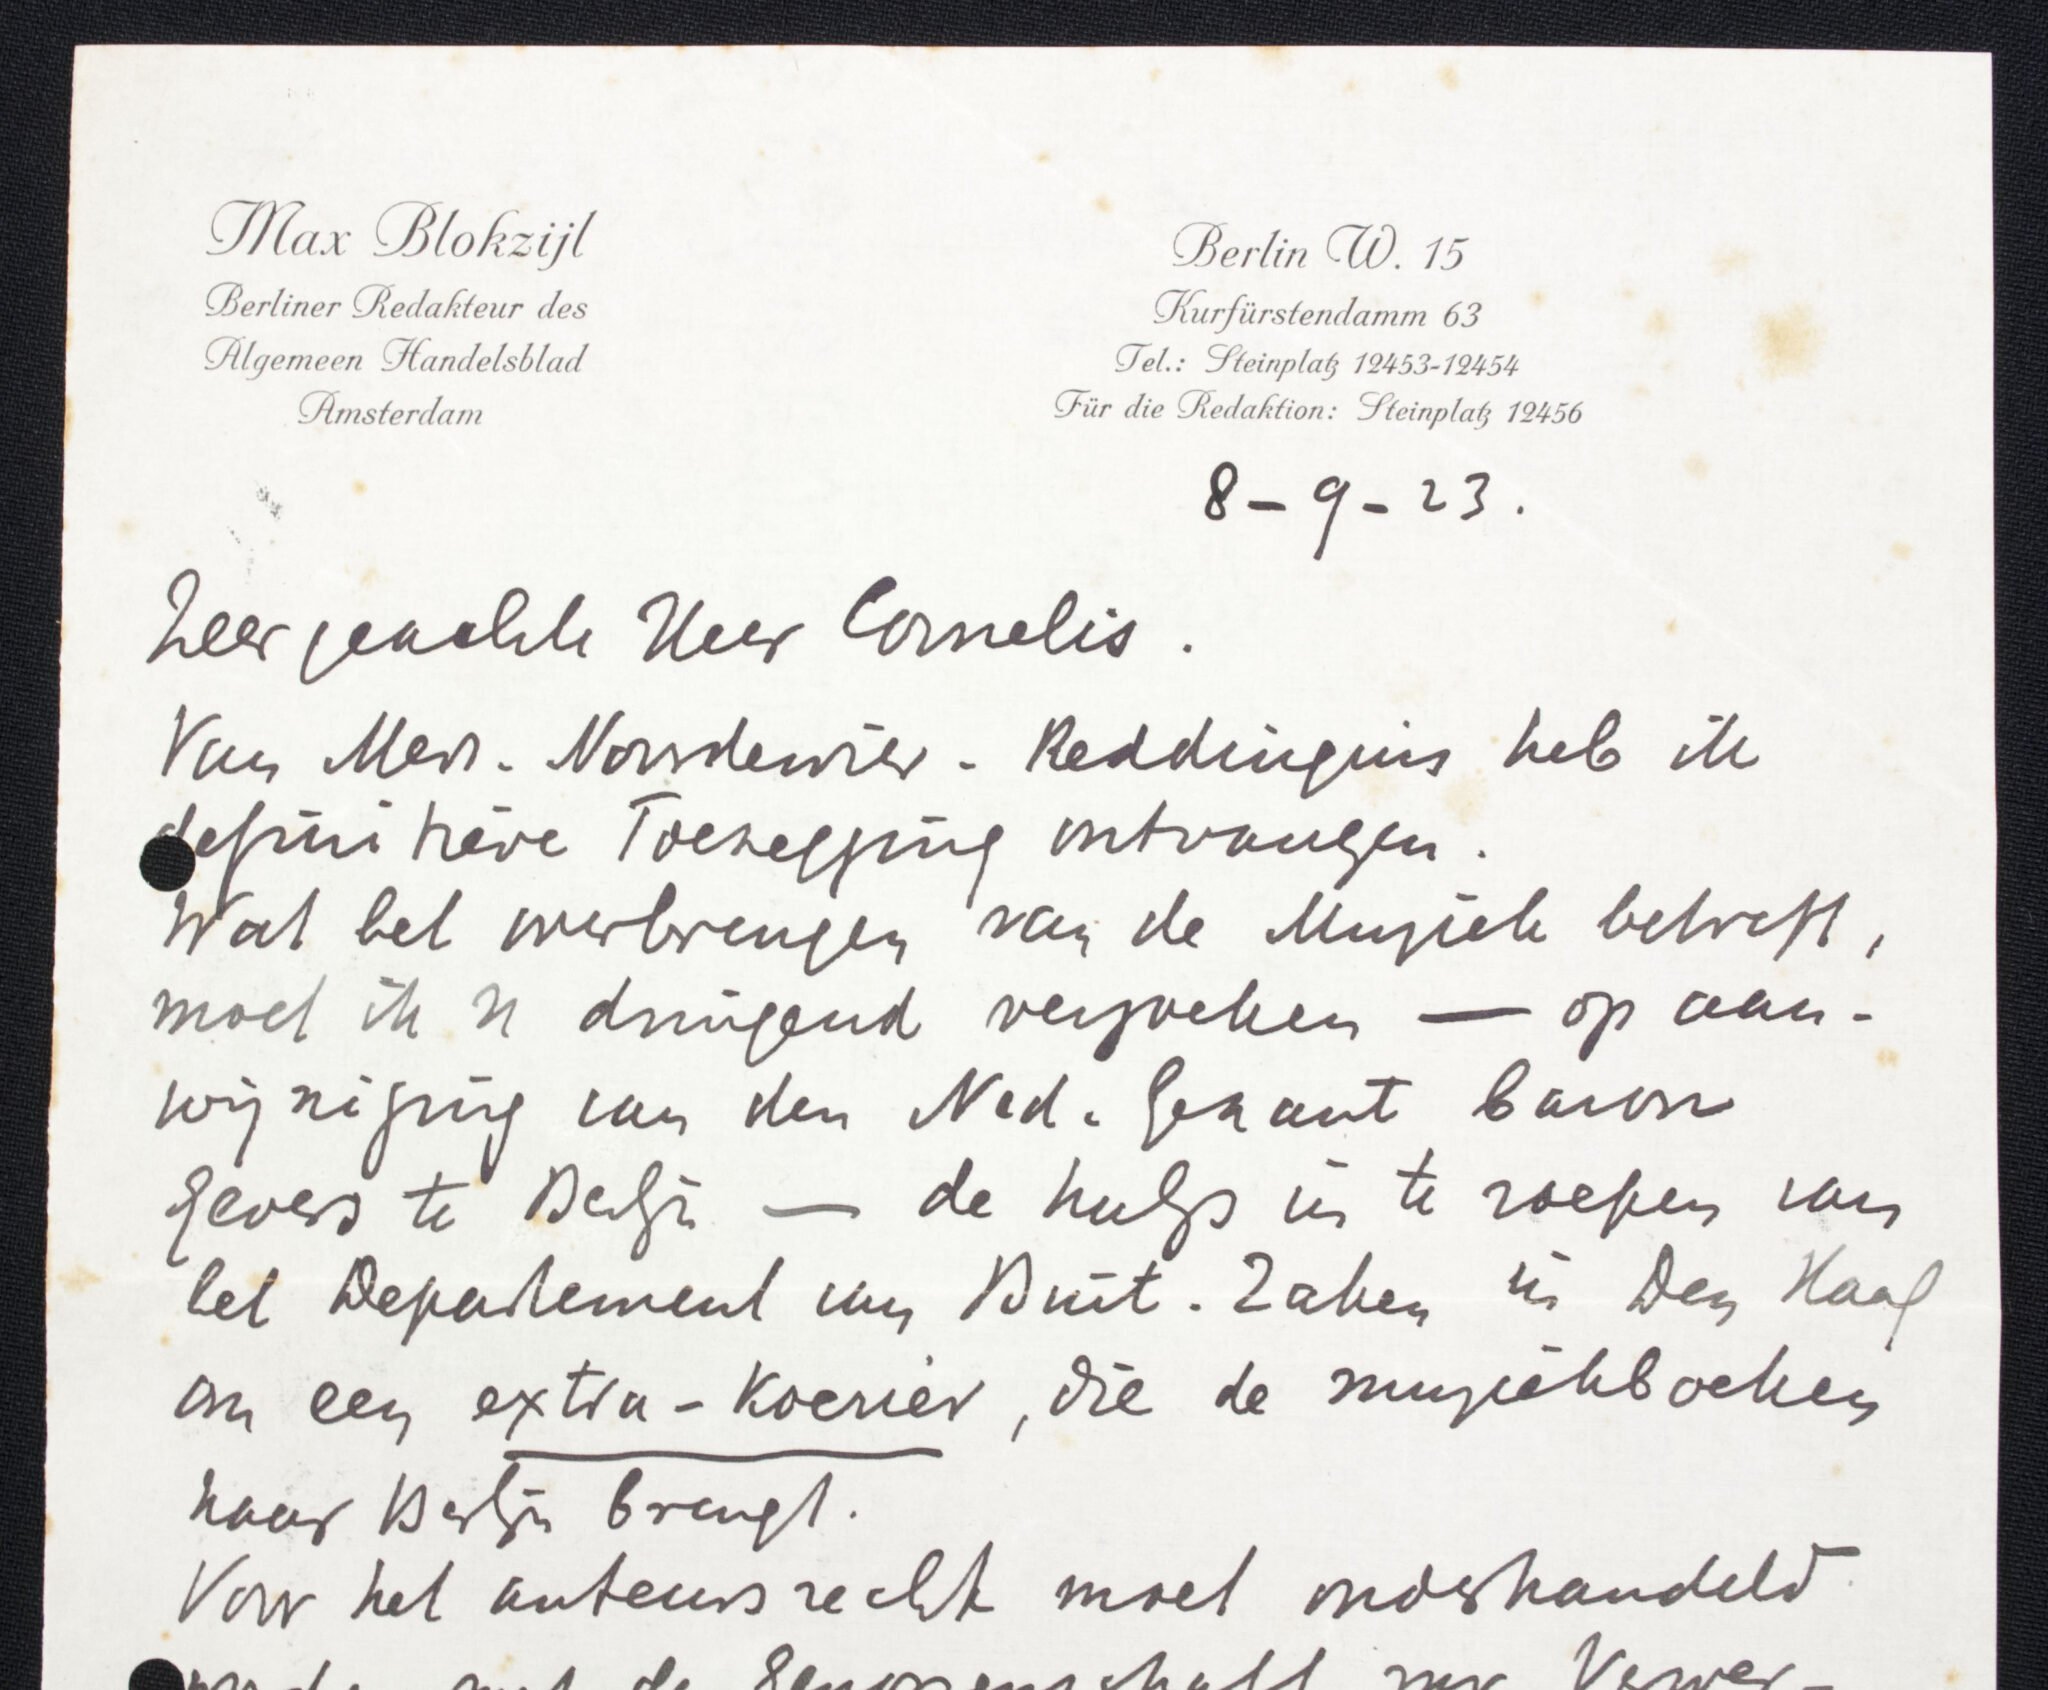 Max Blokzijl
Berliner Redakteur des
Algemeen Handelsblad
Amsterdam
Berlin W. 15
Kurfürstendamm 63
Tel.: Steinplatz 12453-12454
Für die Redaktion: Steinplatz 12456
8-9-23.
Zeer geachte Heer Cornelis.
Van Mevr. Noordewier-Reddingius heb ik
definitieve Toezegging ontvangen.
Wat het overbrengen van de Muziek betreft,
moet ik U dringend verzoeken — op aan-
wijziging van den Ned. Gezant baron
Gevers te Berlijn — de hulp in te roepen van
het Departement van Buit. Zaken in Den Haag
om een extra-Koerier, die de muziekboeken
naar Berlijn brengt.
Voor het auteursrecht moet onderhandeld
worden met de Genossenschaft zur Verwer-